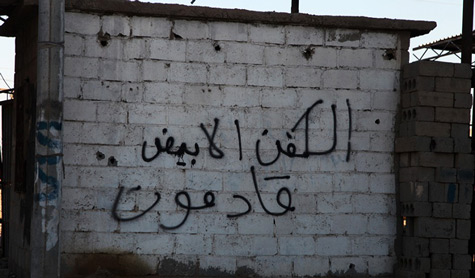 الكفن الابيض
قادمون